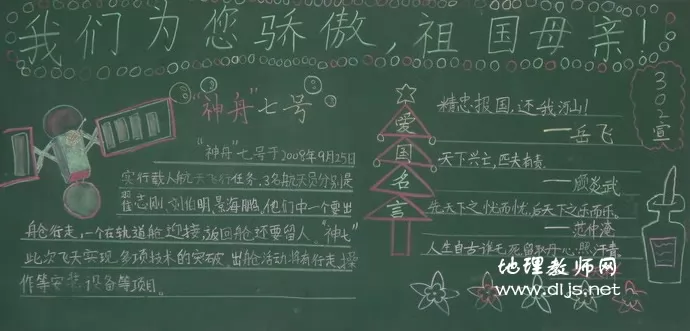 我们为您骄傲，祖国母亲！
302宣
“神舟”七号
“神舟”七号于2008年9月25日
实行载人航天飞行任务，3名航天员分别是
翟志刚，刘伯明，景海鹏，他们中一个要出
舱行走，一个在轨道舱迎接，返回舱还要留人。“神七”
此次飞天实现多项技术的突破，出舱活动将有行走、操
作等安装设备等项目。
爱国名言
精忠报国，还我河山！
——岳飞
天下兴亡，匹夫有责。
——顾炎武
先天下之忧而忧，后天下之乐而乐。
——范仲淹
人生自古谁无死，留取丹心照汗青。
地理教师网
www.dljs.net